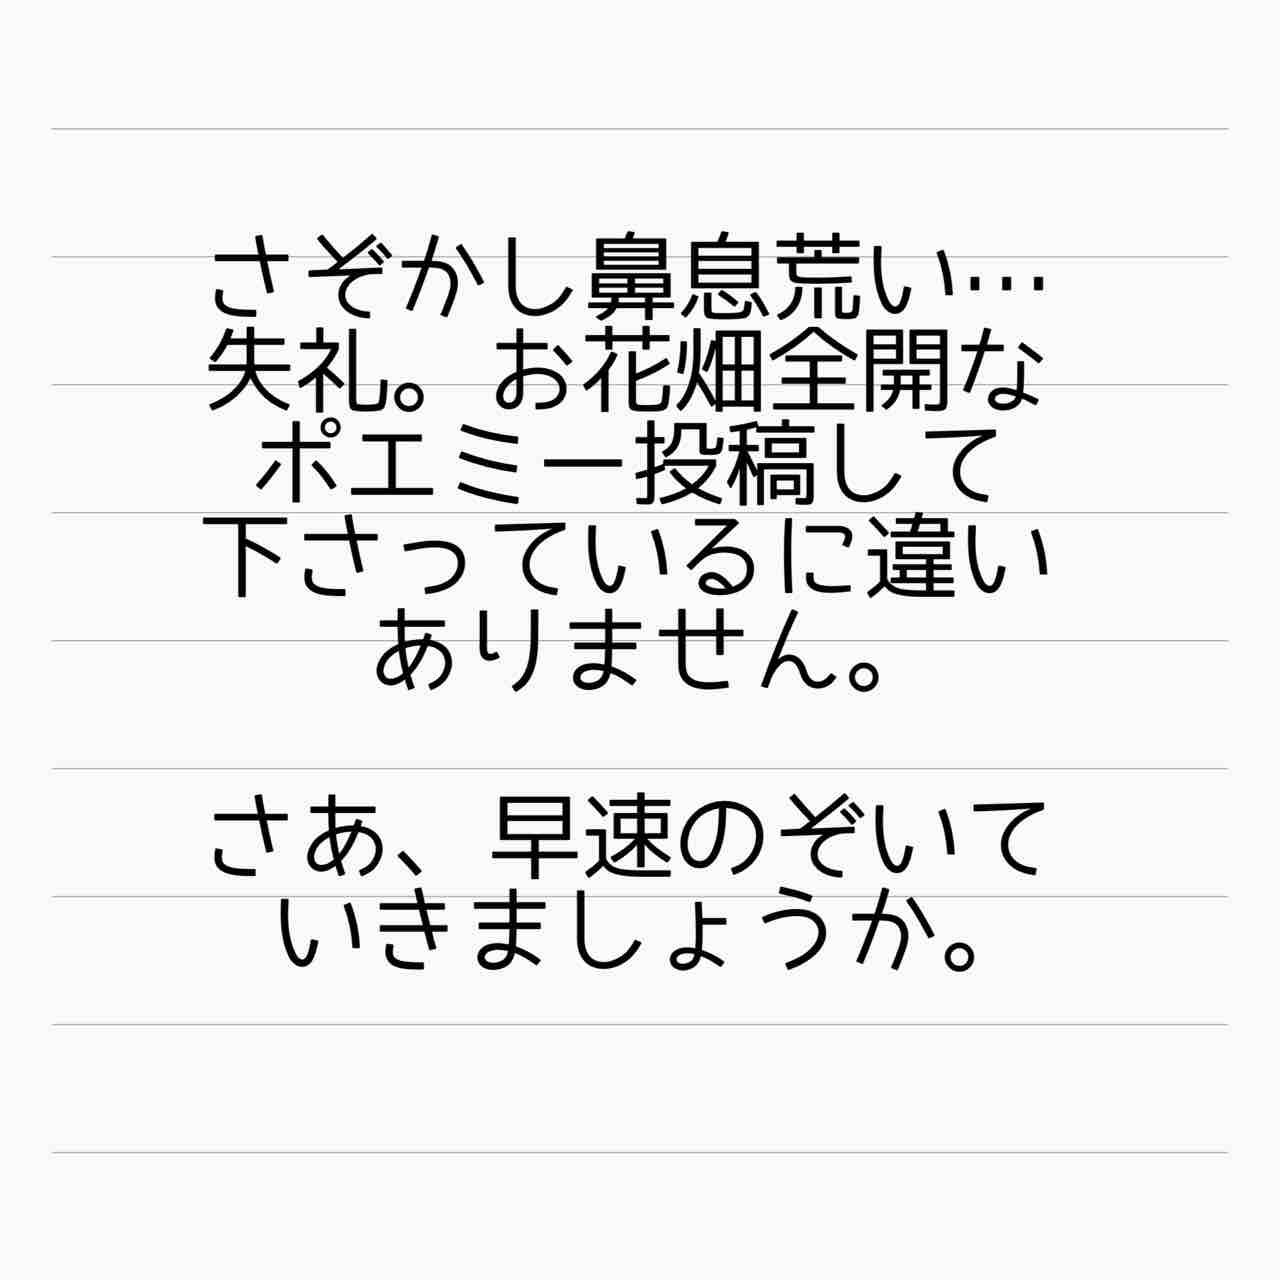 さぞかし鼻息荒い…
失礼。お花畑全開な
ポエミー投稿して
下さっているに違い
ありません。
さあ、早速のぞいて
いきましょうか。